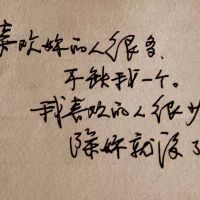 喜欢妳的人很多，
不缺我一个。
我喜欢的人很少，
除妳就没了